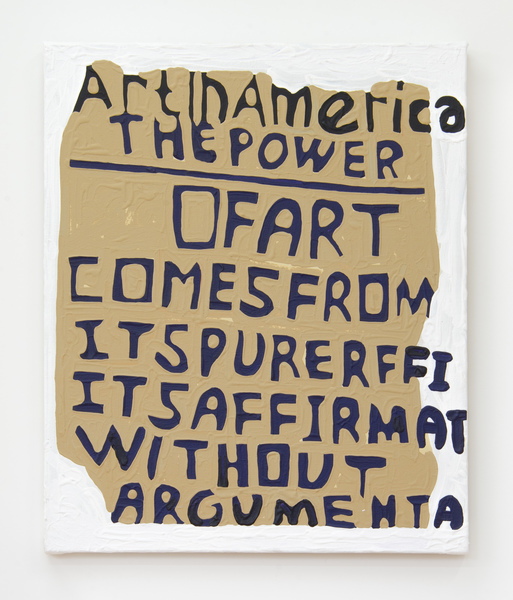 ArtInAmerica
THEPOWER
OFART
COMESFROM
ITSPURERFFI
ITSAFFIRMAT
WITHOUT
ARGUMENTA